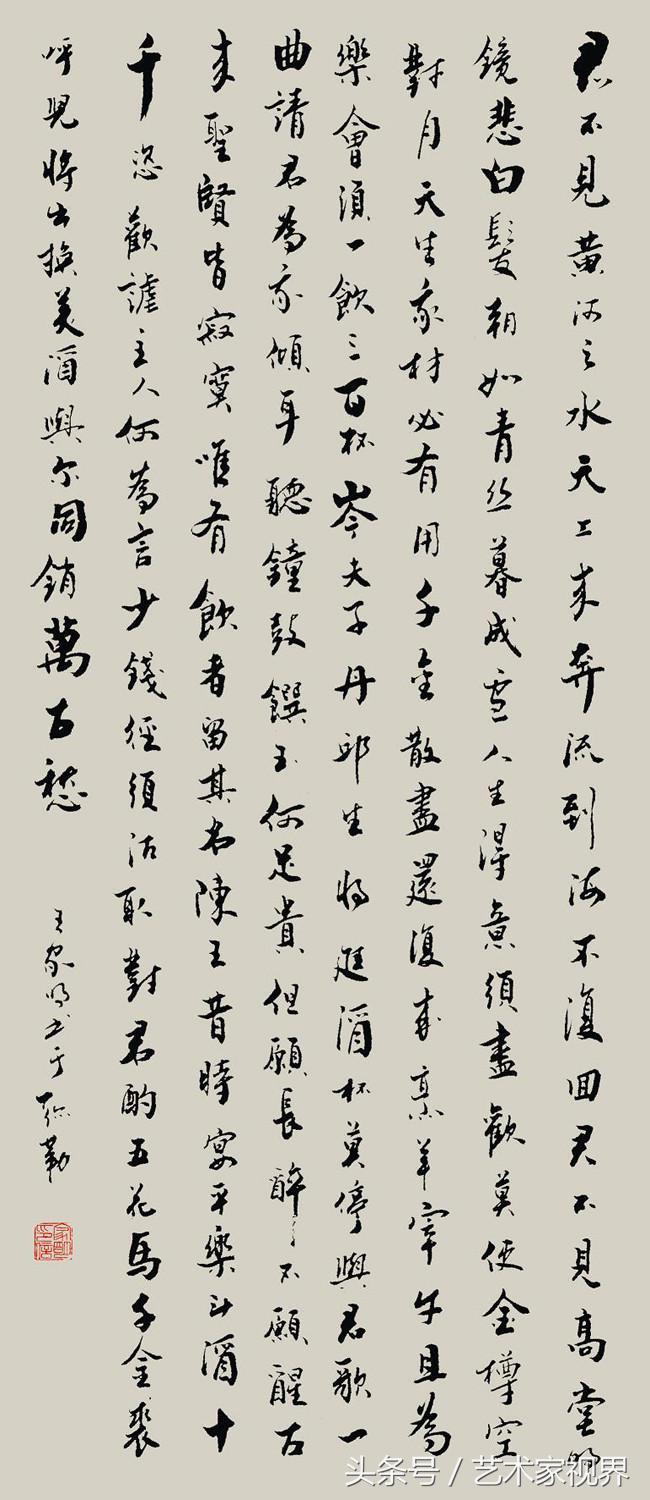 君不見黃河之水天上來奔流到海不復回君不見高堂明
鏡悲白髮朝如青絲暮成雪人生得意須盡歡莫使金樽空
對月天生我材必有用千金散盡還復來烹羊宰牛且為
樂會須一飲三百杯岑夫子丹邱生將進酒杯莫停與君歌一
曲請君為我傾耳聽鐘鼓饌玉何足貴但願長醉不願醒古
來聖賢皆寂寞唯有飲者留其名陳王昔時宴平樂斗酒十
千恣歡謔主人何為言少錢徑須沽取對君酌五花馬千金裘
呼兒將出換美酒與尔同銷萬古愁
王家明書于弥勒
头条号 / 艺术家视界